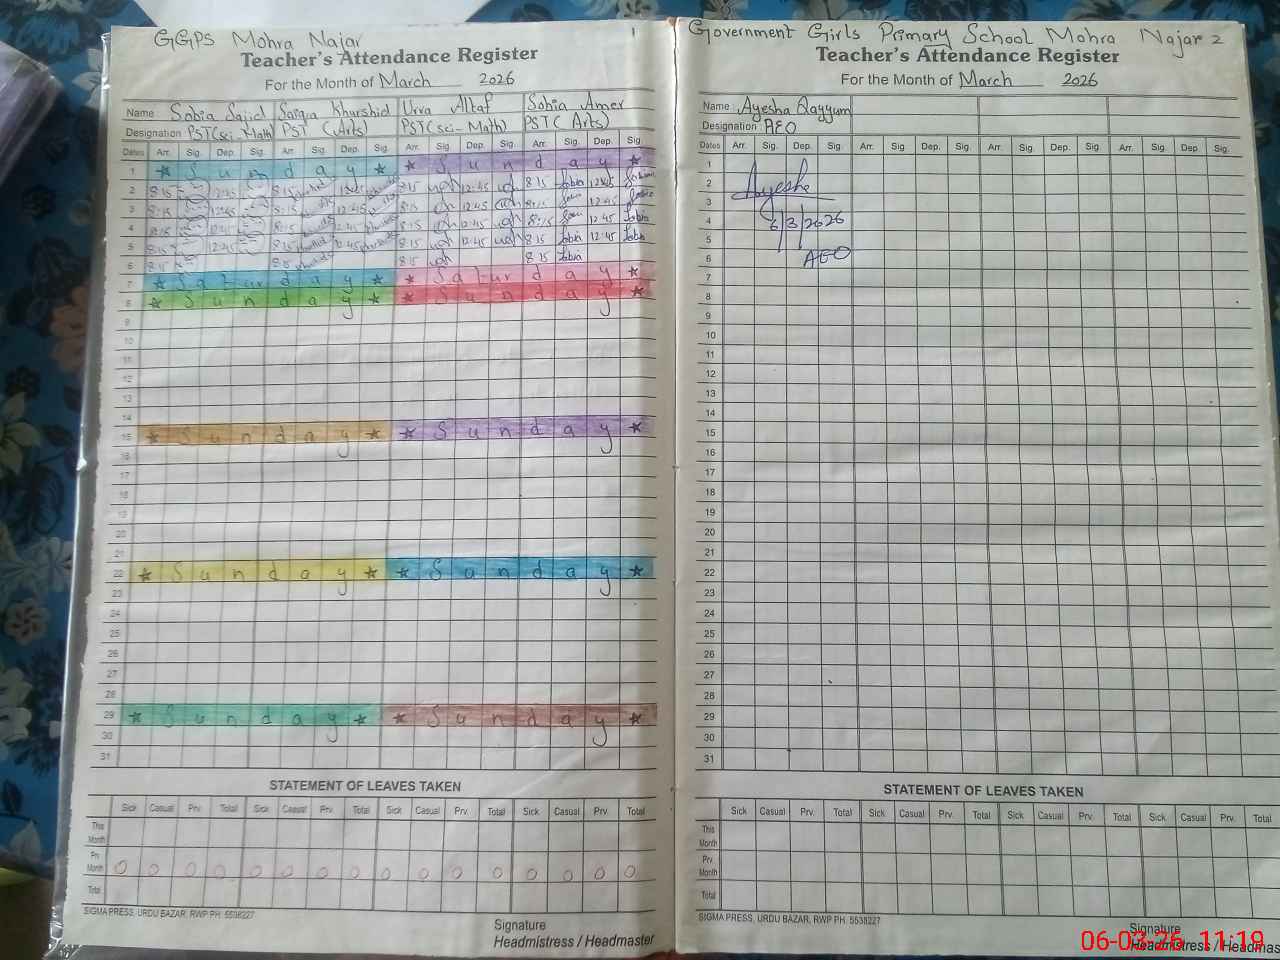 GGPS Mohra Najar 1
Teacher's Attendance Register
For the Month of March 2026
Name Sobia Sajid Saiqa Khurshid Urva Altaf Sobia Amer
Designation PST(sci-Math) PST (Arts) PST(sci-Math) PST (Arts)
Dates Arr. Sig. Dep. Sig. Arr. Sig. Dep. Sig. Arr. Sig. Dep. Sig. Arr. Sig. Dep. Sig.
1 ★ Sunday ★ ★ Sunday ★
2 8:15 12:45 8:15 12:45 8:15 12:45 8:15 Sobia 12:45 Sobia
3 8:15 12:45 8:15 12:45 8:15 12:45 8:15 12:45
4 8:15 12:45 8:15 12:45 8:15 12:45 8:15 12:45 Sobia
5 8:15 12:45 8:15 12:45 8:15 12:45 8:15 Sobia 12:45 Sobia
6 8:15 8:15 8:15 8:15 Sobia
7 ★ Saturday ★ ★ Saturday ★
8 ★ Sunday ★ ★ Sunday ★
9
10
11
12
13
14
15 ★ Sunday ★ ★ Sunday ★
16
17
18
19
20
21
22 ★ Sunday ★ ★ Sunday ★
23
24
25
26
27
28
29 ★ Sunday ★ ★ Sunday ★
30
31
STATEMENT OF LEAVES TAKEN
Sick Casual Prv. Total Sick Casual Prv. Total Sick Casual Prv. Total Sick Casual Prv. Total
This Month
Prv. Month 0 0 0 0 0 0 0 0 0 0 0 0 0 0 0 0
Total
SIGMA PRESS, URDU BAZAR, RWP PH: 5538227
Signature
Headmistress / Headmaster
Government Girls Primary School Mohra Najar 2
Teacher's Attendance Register
For the Month of March 2026
Name Ayesha Qayyum
Designation AEO
Dates Arr. Sig. Dep. Sig. Arr. Sig. Dep. Sig. Arr. Sig. Dep. Sig. Arr. Sig. Dep. Sig.
1
2 Ayesha
3
4 6/3/2026
5
6 AEO
7
8
9
10
11
12
13
14
15
16
17
18
19
20
21
22
23
24
25
26
27
28
29
30
31
STATEMENT OF LEAVES TAKEN
Sick Casual Prv. Total Sick Casual Prv. Total Sick Casual Prv. Total Sick Casual Prv. Total
This Month
Prv. Month
Total
SIGMA PRESS, URDU BAZAR, RWP PH: 5538227
Signature
Headmistress / Headmas
06-03-26 11:19